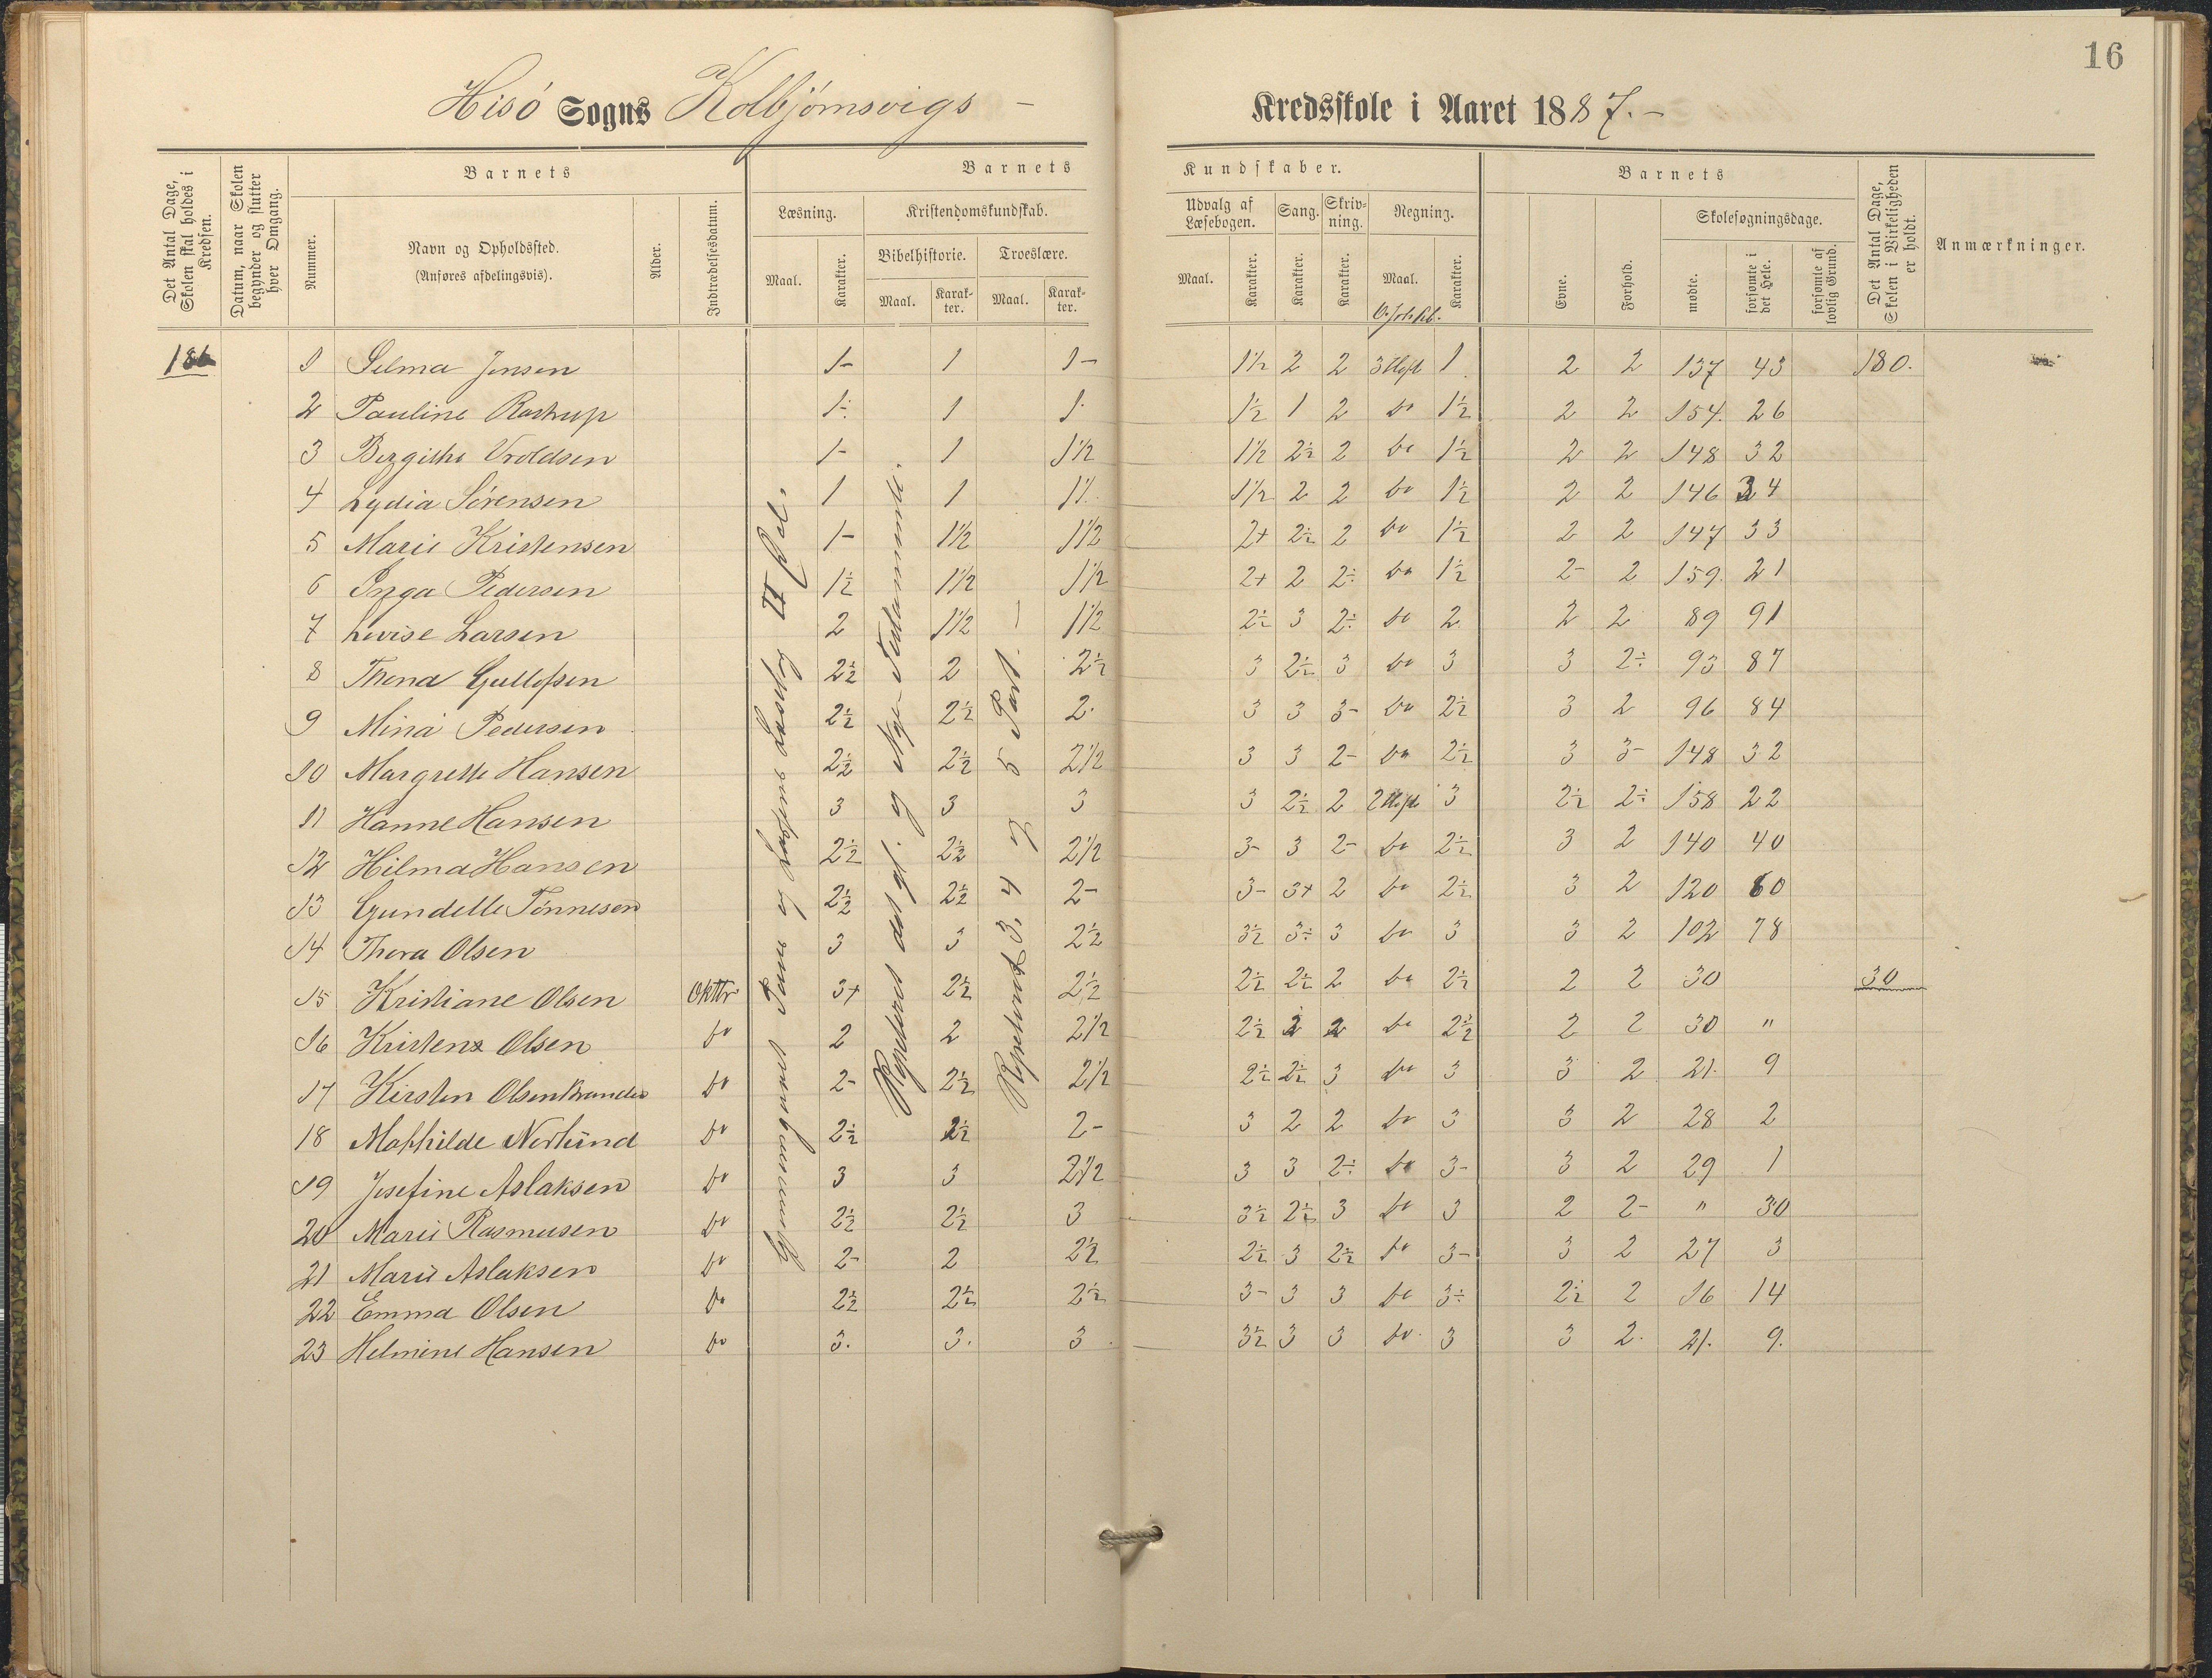 16
Hisö Sogns Kolbjörnsvigs – Kredsskole i Aaret 1887.–
Det Antal Dage, Skolen skal holdes i Kredsen.
Datum, naar Skolen begynder og slutter hver Omgang.
Barnets
Nummer.
Navn og Opholdssted.
(Anføres afdelingsvis).
Alder.
Indtrædelsesdatum.
Barnets Kundskaber.
Læsning.
Maal.
Karakter.
Kristendomskundskab.
Bibelhistorie.
Maal.
Karakter.
Troeslære.
Maal.
Karakter.
Udvalg af Læsebogen.
Maal.
Karakter.
Sang.
Karakter.
Skrivning.
Karakter.
Regning.
Maal.
Karakter.
Barnets
Evne.
Forhold.
Skolesøgningsdage.
mødte.
forsømte i det Hele.
forsømte af lovlig Grund.
Det Antal Dage, Skolen i Virkeligheden er holdt.
Anmærkninger.
186 1 Selma Jensen 1- 1 1- 1½ 2 2 3 Hefte 1 2 2 137 43 180.
2 Pauline Rostrup 1÷ 1 1· 1½ 1 2 do 1½ 2 2 154. 26
3 Bergithe Vroldsen 1- 1 1½ 1½ 2½ 2 do 1½ 2 2 148 32
4 Lydia Sörensen 1 1 1½ 1½ 2 2 do 1½ 2 2 146 34
5 Marie Kristensen 1- 1½ 1½ 2+ 2½ 2 do 1½ 2 2 147 33
6 Inga Pedersen 1½ 1½ 1½ 2+ 2 2÷ do 1½ 2- 2 159. 21
7 Lovise Larsen 2 1½ 1½ 2½ 3 2÷ do 2 2 2 89 91
8 Thena Gullofsen 2½ 2 2½ 3 2½ 3 do 3 3 2÷ 93 87
9 Mina Pedersen 2½ 2½ 2· 3 3 3- do 2½ 3 2 96 84
10 Margrethe Hansen 2½ 2½ 2½ 3 3 2- do 2½ 3 3- 148 32
11 Hanne Hansen 3 3 3 3 2½ 2 2 Hefte 3 2½ 2÷ 158 22
12 Hilma Hansen 2½ 2½ 2½ 3- 3 2- do 2½ 3 2 140 40
13 Gundelle Tönnesen 2½ 2½ 2- 3- 3+ 2 do 2½ 3 2 120 60
14 Thora Olsen 3 3 2½ 3½ 3÷ 3 do 3 3 2 102 78
15 Kristiane Olsen Oktbr 3+ 2½ 2½ 2½ 2½ 2 do 2½ 2 2 30 30
16 Kristens Olsen do 2 2 2½ 2½ 2 2 do 2½ 2 2 30 "
17 Kirsten Olsen do 2- 2½ 2½ 2½ 2½ 3 do 3 3 2 21. 9
18 Mathilde Nerlund do 2½ 2½ 2- 3 2 2 do 3 3 2 28 2
19 Josefine Aslaksen do 3 3 2½ 3 3 2÷ do 3- 3 2 29 1
20 Marie Rasmusen do 2½ 2½ 3 3½ 2½ 3 do 3 2 2- " 30
21 Marie Aslaksen do 2- 2 2½ 2½ 3 2½ do 3- 3 2 27 3
22 Emma Olsen do 2½ 2½ 2½ 3- 3 3 do 3÷ 2½ 2 16 14
23 Helmine Hansen do 3. 3. 3 3½ 3 3 do 3 3 2. 21. 9.
Repeteret det gl. og Nye-Testamente.
Repeteret 3, 4 og 5 Part.